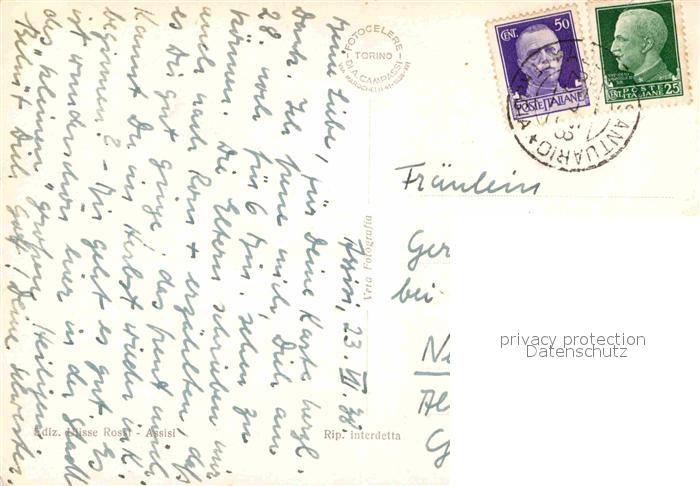 Assisi, 23. VII. 38
Meine Liebe, für Deine Karte herzl.
Dank. Ich freue mich, Dich am
28. noch für 6 Min. sehen zu
können. Die Eltern schrieben mir
auch nach Rom + erzählten, daß
es Dir gut ginge, das freut mich.
Kannst Du im Herbst wieder in K.
beginnen? - Mir geht es gut. Es
ist wunderschön hier in der Stadt
des "kleinen" großen Heiligen.
Behüt Dich Gott! Deine Schwester.
FOTOCELERE
TORINO
DI A. CAMPASSI
Vera Fotografia
Ediz. Ulisse Rossi - Assisi
Rip. interdetta
CENT. 50
POSTE ITALIANE
CENT. 25
POSTE
ITALIANE
SANTUARIO
Fräulein
Ger
bei
Ne
privacy protection
Datenschutz